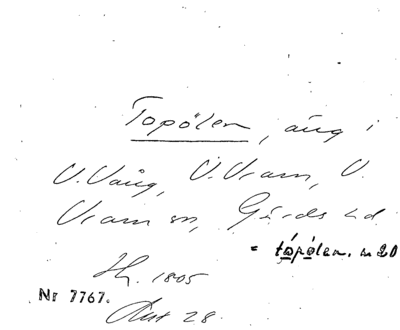 Topölen, äng i
V. Vång, V. Vram, V.
Vram sn, Gärds hd
= tópòlen. m 20
Hy. 1805
Nr 7767.
Akt 28.